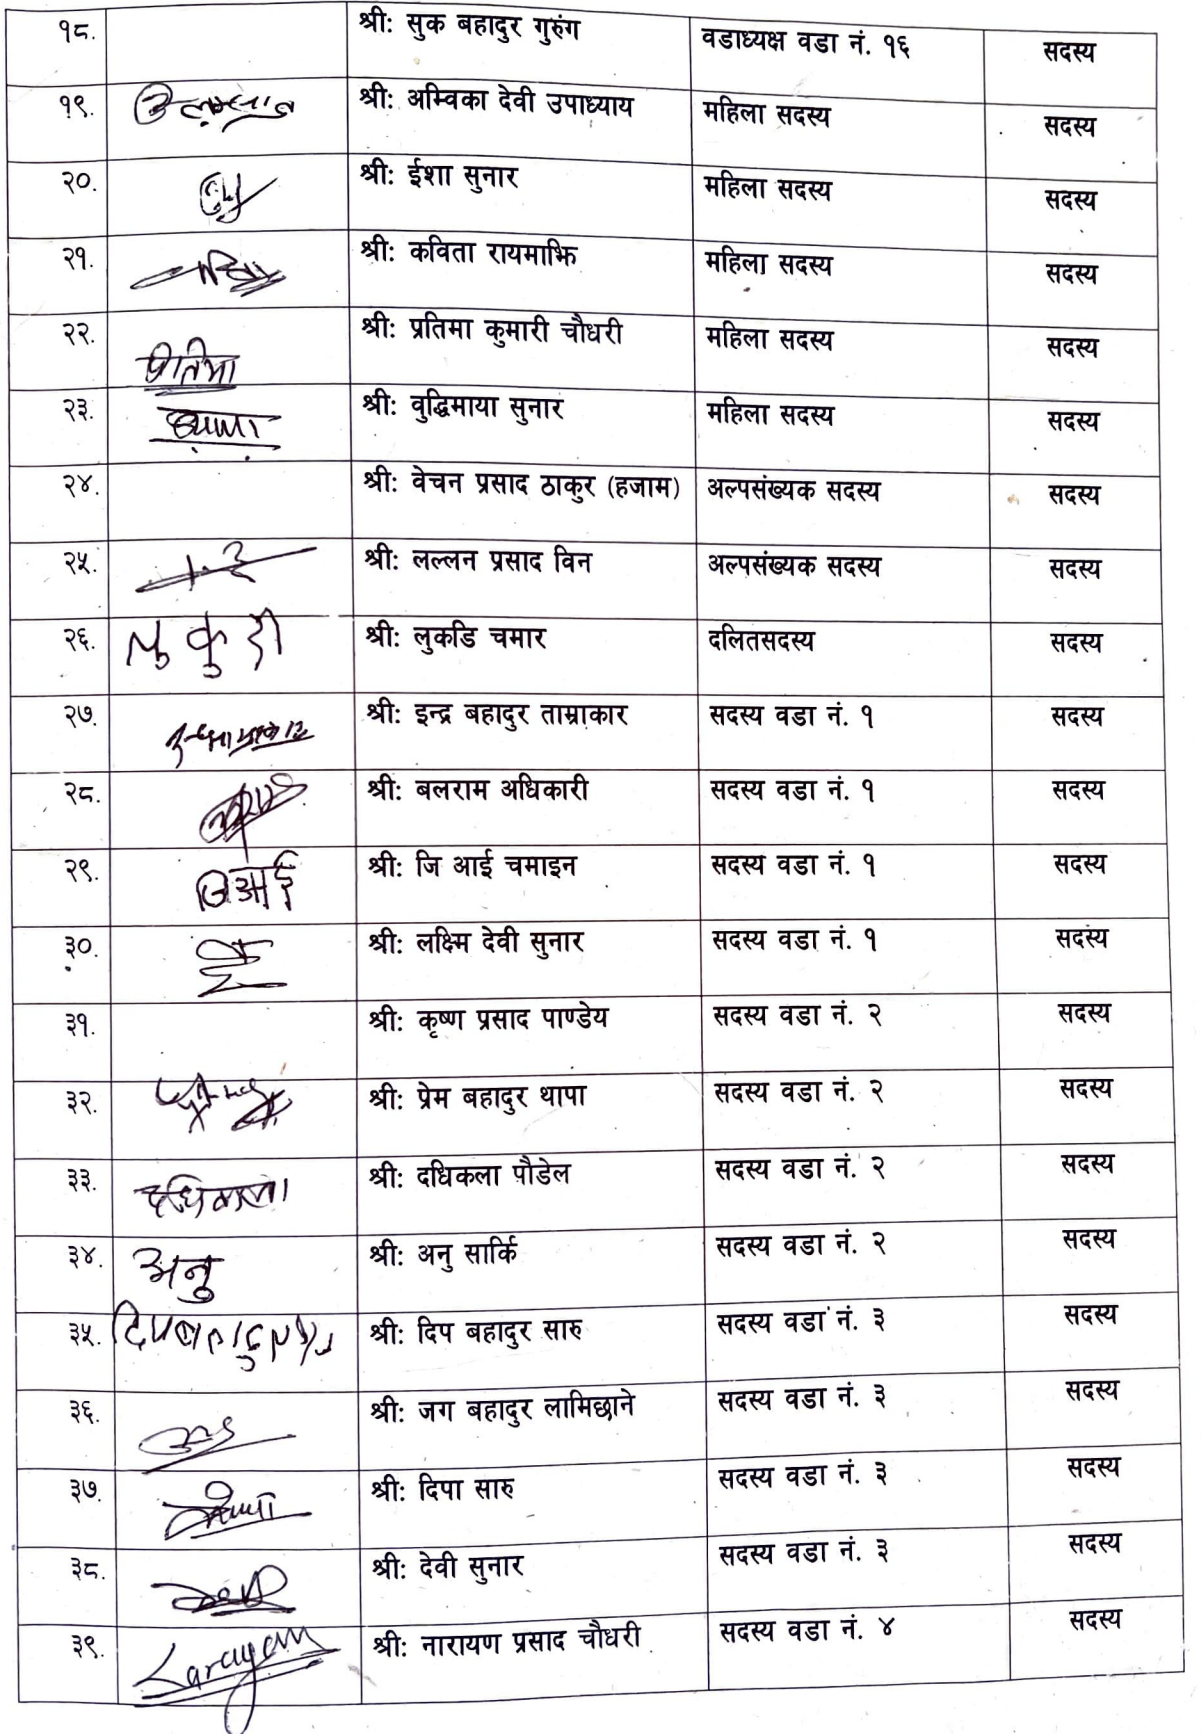 १८. श्री: सुक बहादुर गुरुंग वडाध्यक्ष वडा नं. १६ सदस्य
१९. श्री: अम्विका देवी उपाध्याय महिला सदस्य सदस्य
२०. श्री: ईशा सुनार महिला सदस्य सदस्य
२१. श्री: कविता रायमाझि महिला सदस्य सदस्य
२२. प्रतिमा श्री: प्रतिमा कुमारी चौधरी महिला सदस्य सदस्य
२३. श्री: वुद्धिमाया सुनार महिला सदस्य सदस्य
२४. श्री: वेचन प्रसाद ठाकुर (हजाम) अल्पसंख्यक सदस्य सदस्य
२५. श्री: लल्लन प्रसाद विन अल्पसंख्यक सदस्य सदस्य
२६. लुकुडी श्री: लुकडि चमार दलितसदस्य सदस्य
२७. श्री: इन्द्र बहादुर ताम्राकार सदस्य वडा नं. १ सदस्य
२८. श्री: बलराम अधिकारी सदस्य वडा नं. १ सदस्य
२९. जिआई श्री: जि आई चमाइन सदस्य वडा नं. १ सदस्य
३०. श्री: लक्ष्मि देवी सुनार सदस्य वडा नं. १ सदस्य
३१. श्री: कृष्ण प्रसाद पाण्डेय सदस्य वडा नं. २ सदस्य
३२. श्री: प्रेम बहादुर थापा सदस्य वडा नं. २ सदस्य
३३. दधिकला श्री: दधिकला पौडेल सदस्य वडा नं. २ सदस्य
३४. अनु श्री: अनु सार्कि सदस्य वडा नं. २ सदस्य
३५. श्री: दिप बहादुर सारु सदस्य वडा नं. ३ सदस्य
३६. श्री: जग बहादुर लामिछाने सदस्य वडा नं. ३ सदस्य
३७. श्री: दिपा सारु सदस्य वडा नं. ३ सदस्य
३८. श्री: देवी सुनार सदस्य वडा नं. ३ सदस्य
३९. Narayan श्री: नारायण प्रसाद चौधरी सदस्य वडा नं. ४ सदस्य